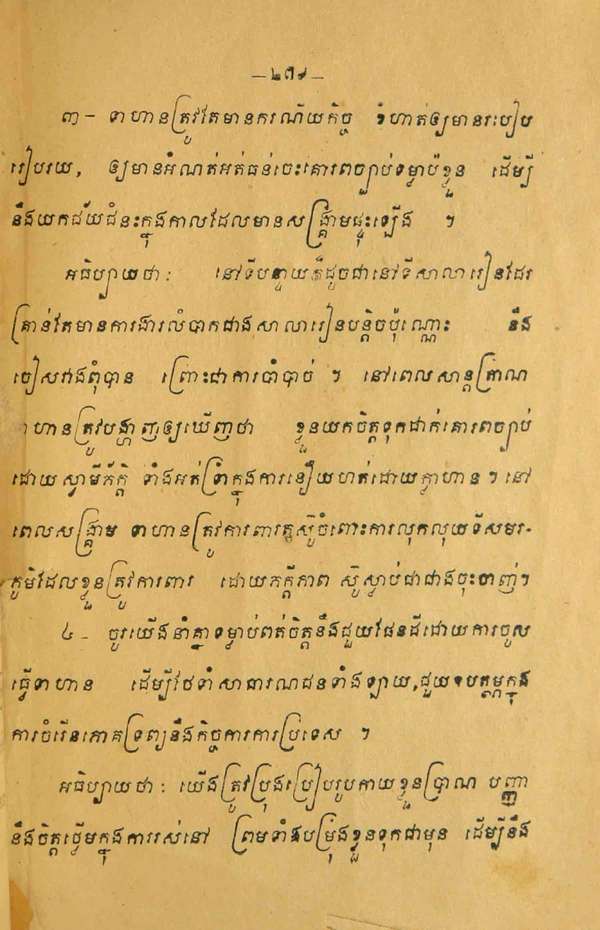 –២៧៩–
៣- ទាហានត្រូវតែមានករណីយកិច្ច ខំហាត់ឲ្យមានរបៀប
រៀបរយ, ឲ្យមានអំណត់អត់ធន់ចេះគោរពច្បាប់ទម្លាប់ខ្លួន ដើម្បី
នឹងយកជ័យជំនះក្នុងកាលដែលមានសង្គ្រាមផ្ទុះឡើង ។
អធិប្បាយថា: នៅទីបន្ទាយក៏ដូចជានៅទីសាលារៀនដែរ
គ្រាន់តែមានការងារលំបាកជាងសាលារៀនបន្តិចប៉ុណ្ណោះ នឹង
ចៀសវាងពុំបាន ព្រោះជាការបាំបាច់ ។ នៅពេលសាន្តត្រាណ
ទាហានត្រូវបង្ហាញឲ្យឃើញថា ខ្លួនយកចិត្តទុកដាក់គោរពច្បាប់
ដោយស្វាមីភ័ក្តិ ទាំងអត់ទ្រាំក្នុងការនឿយហត់ដោយក្លាហាន។ នៅ
ពេលសង្គ្រាម ទាហានត្រូវការពារតស៊ូចំពោះការលុកលុយទីសមរ-
ភូមិដែលខ្លួនត្រូវការពារ ដោយភក្តីភាព ស៊ូស្លាប់ជាជាងចុះចាញ់។
៤- ចូរយើងនាំគ្នាទម្លាប់ពត់ចិត្តនឹងជួយផែនដីដោយការចូល
ធ្វើទាហាន ដើម្បីថែទាំសាធារណជនទាំងឡាយ, ជួយឧបត្ថម្ភក្នុង
ការចំរើនភោគទ្រព្យនឹងកិច្ចការការប្រទេស ។
អធិប្បាយថា: យើងត្រូវប្រុងប្រៀបរូបកាយខ្លួនប្រាណ បញ្ញា
នឹងចិត្តធ្លើមក្នុងការរស់នៅ ព្រមទាំងបម្រុងខ្លួនទុកជាមុន ដើម្បីនឹង